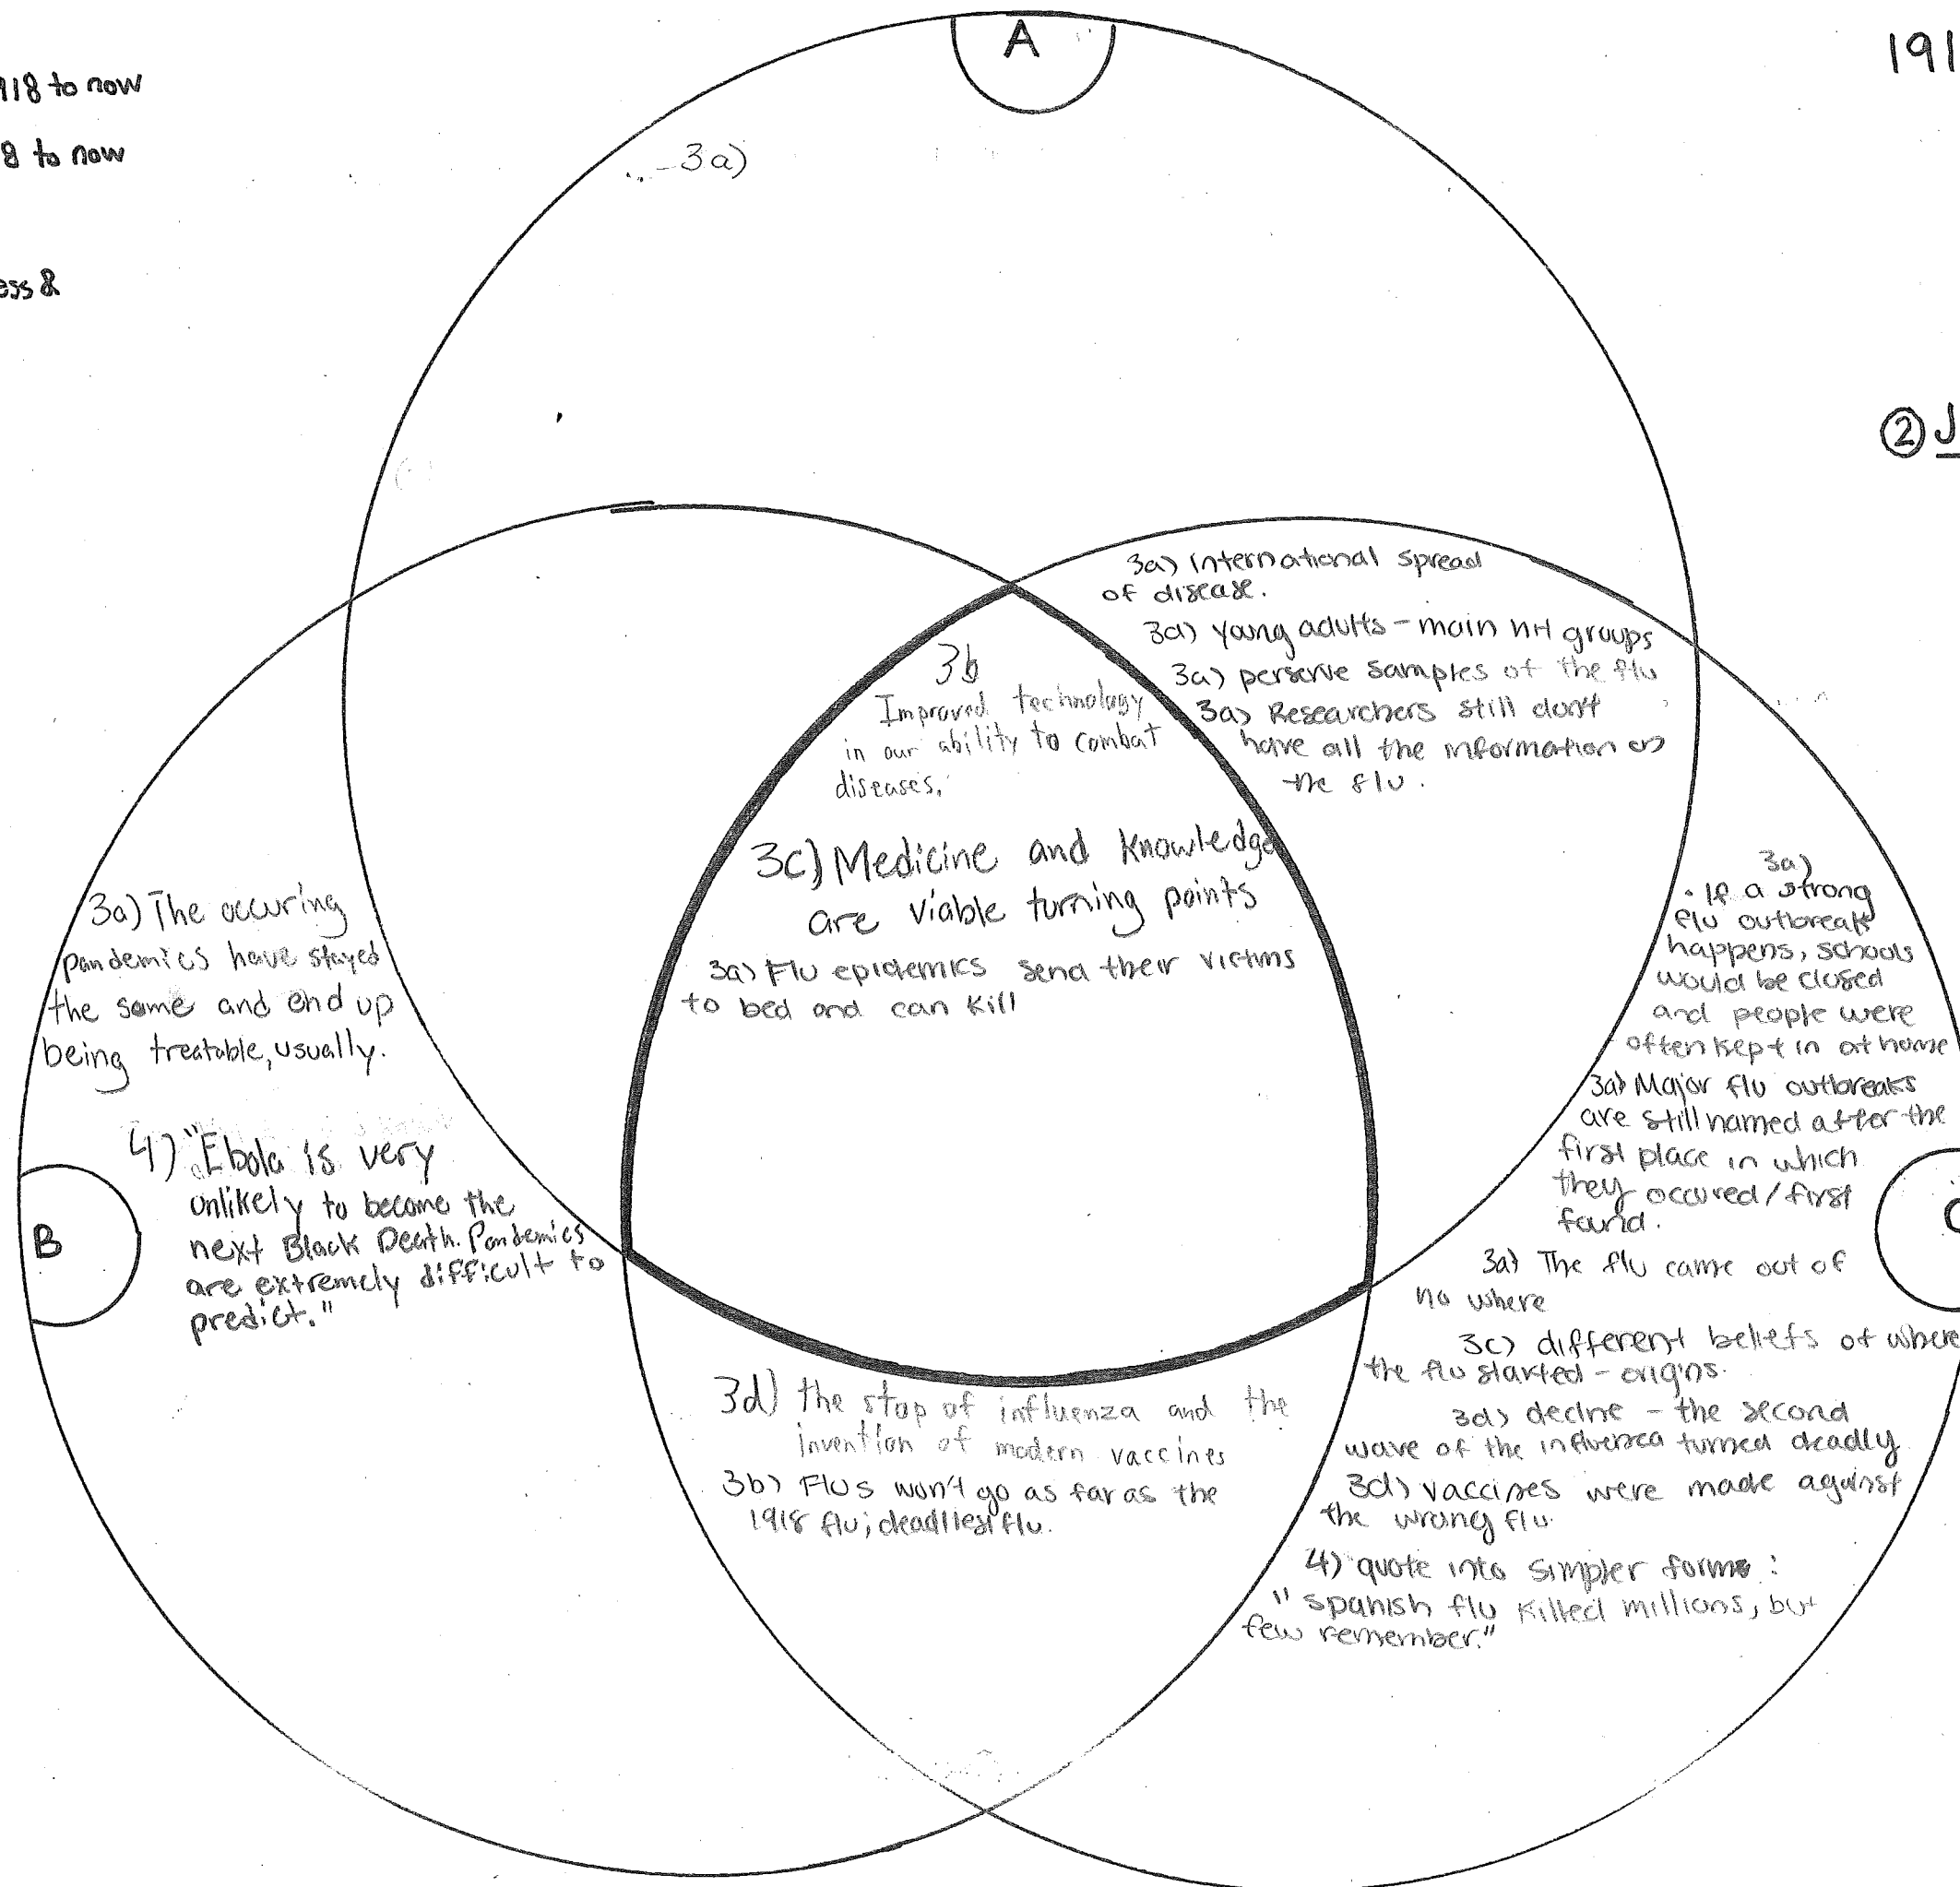 918 to now
8 to now
ess &
191
② J
A
3a)
3a) International spread
of disease.
3a) young adults - main hit groups
3a) perserve samples of the flu
3a) Researchers still don't
have all the information on
the flu.
3b
Improved technology
in our ability to combat
diseases.
3c) Medicine and Knowledge
are viable turning points
3a) Flu epidemics send their victims
to bed and can kill
3a) The occuring
pandemics have stayed
the same and end up
being treatable, usually.
4) "Ebola is very
unlikely to become the
next Black Death. Pandemics
are extremely difficult to
predict."
B
3a)
• If a strong
flu outbreak
happens, schools
would be closed
and people were
often kept in at home
3a) Major flu outbreaks
are still named after the
first place in which
they occured/first
found.
C
3a) The flu came out of
no where
3c) different beliefs of where
the flu started - origins.
3d) decline - the second
wave of the influenza turned deadly
3d) vaccines were made against
the wrong flu.
4) quote into simpler forms:
"spanish flu killed millions, but
few remember."
3d) the stop of influenza and the
invention of modern vaccines
3b) Flus won't go as far as the
1918 flu; deadliest flu.